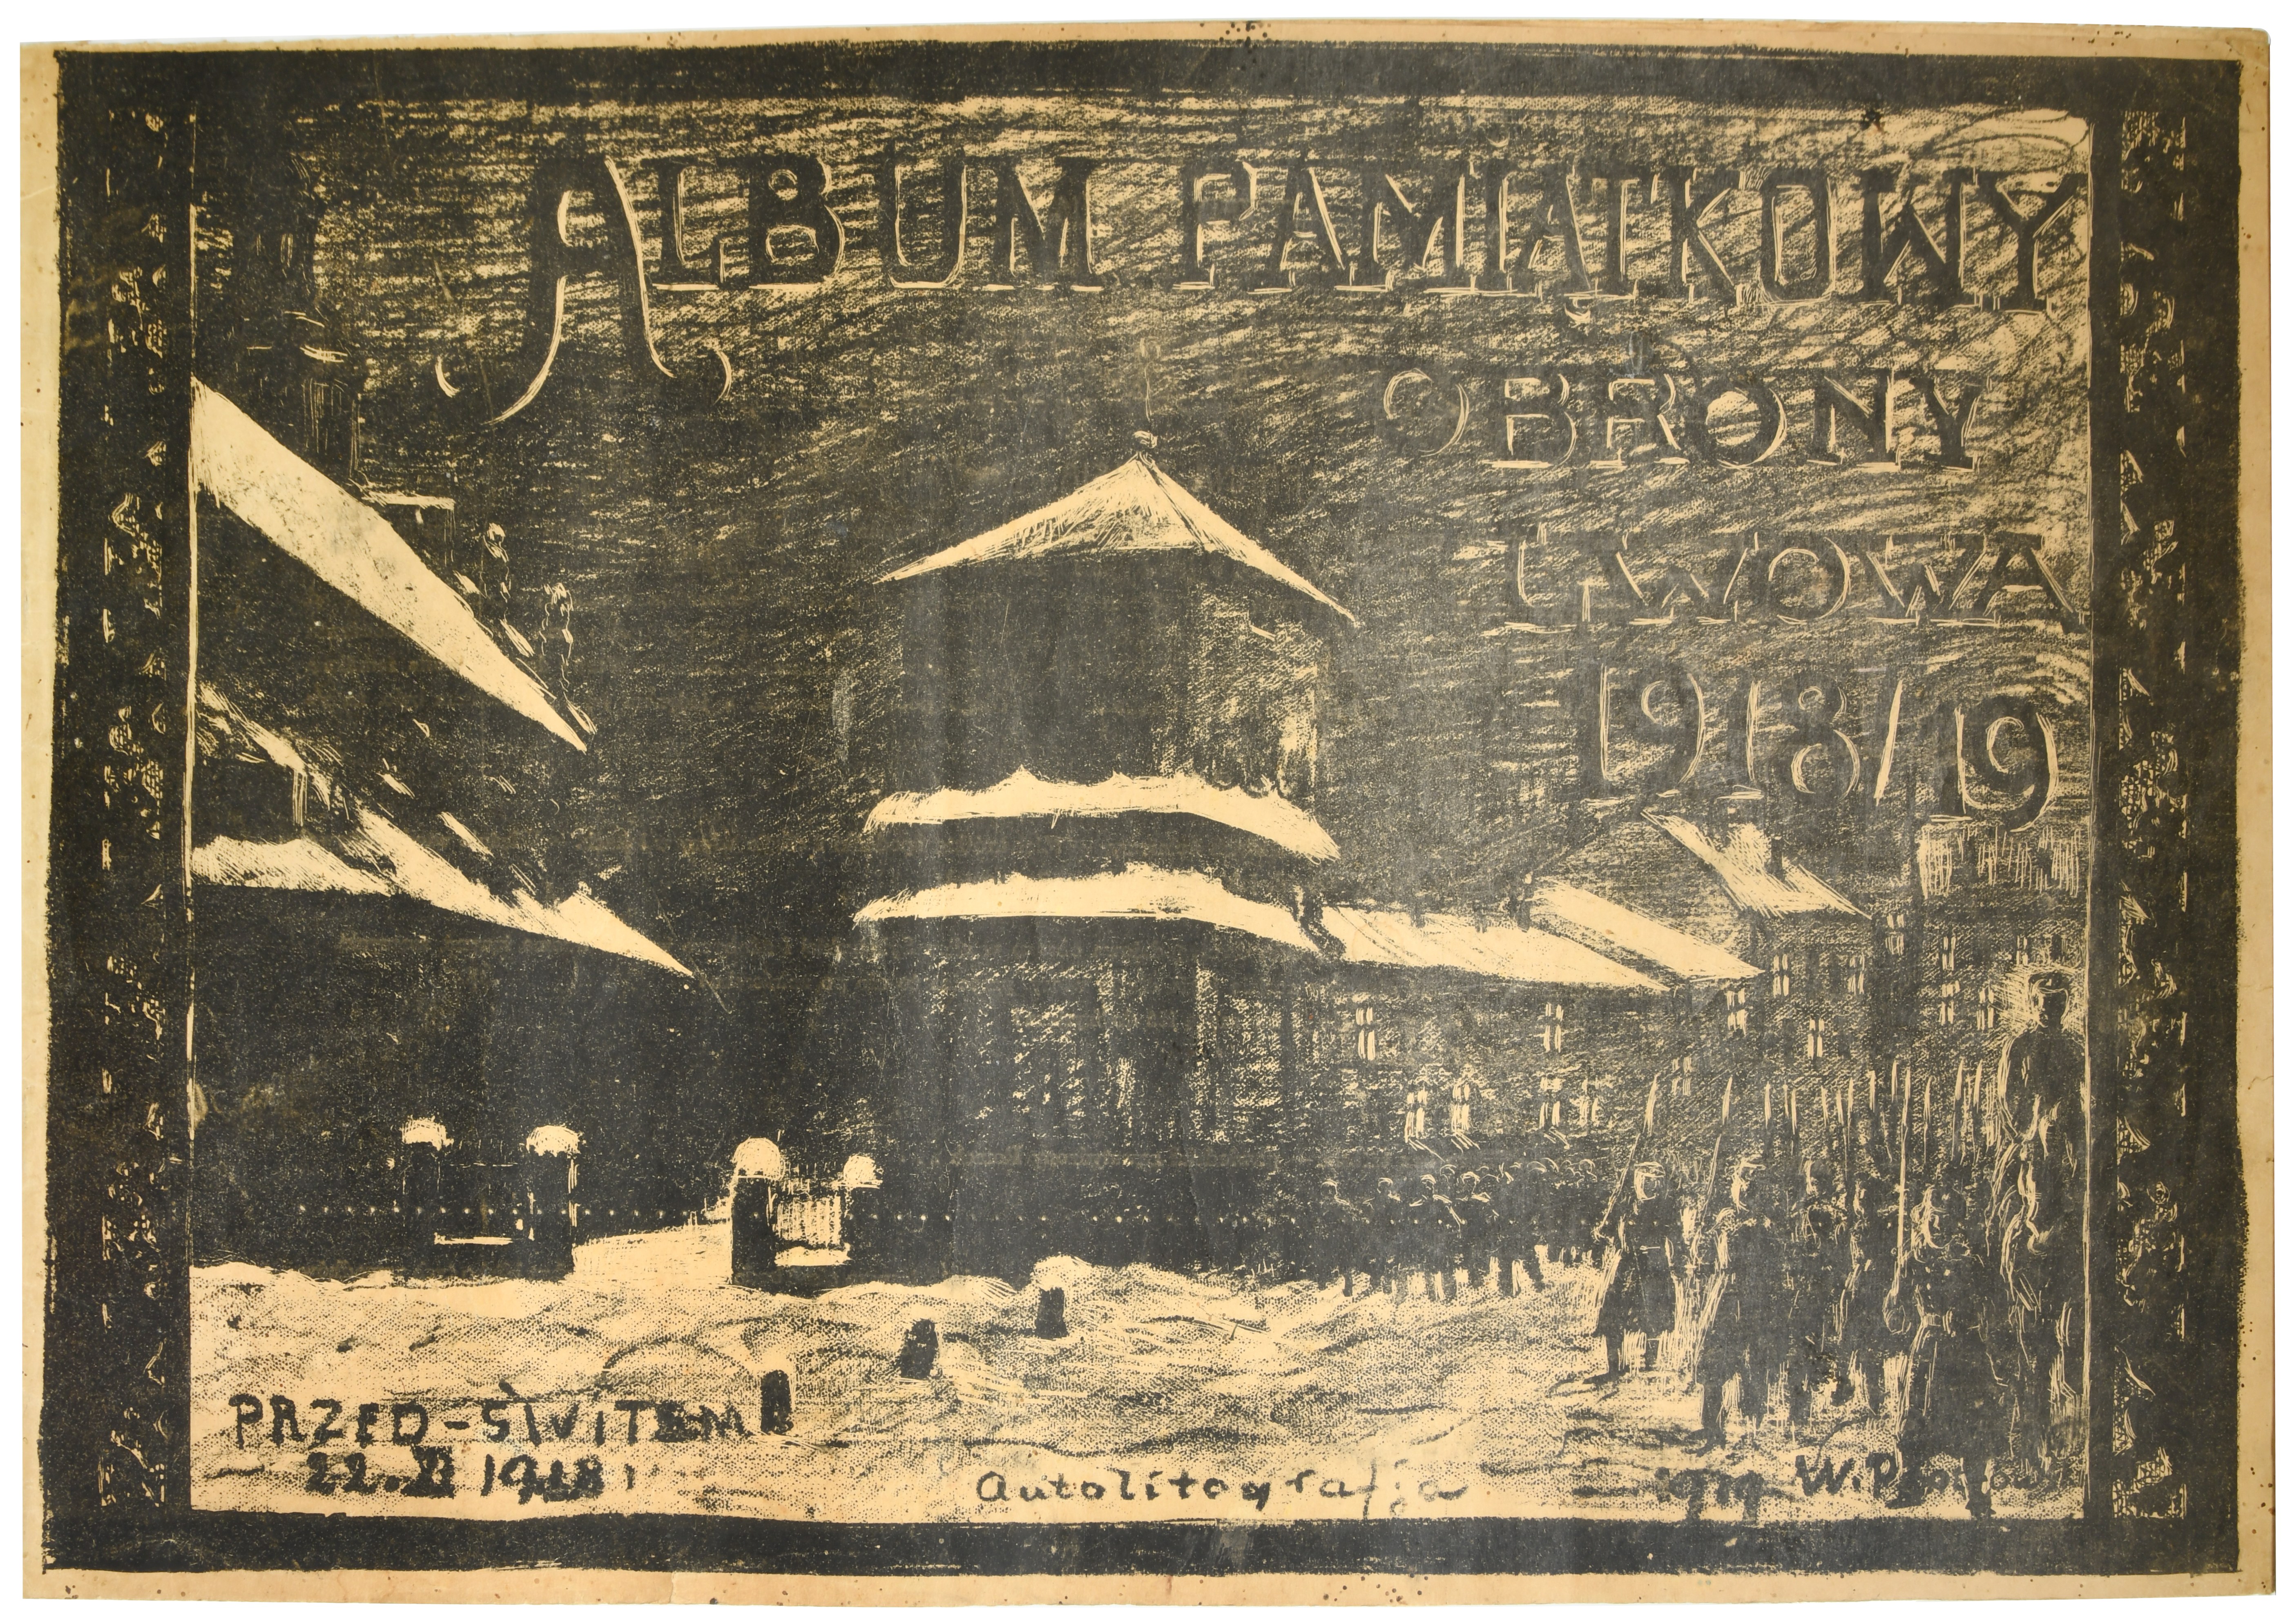 ALBUM PAMIĄTKOWY
OBRONY
LWOWA
1918/19
PRZED-ŚWITEM
22.XI 1918
Autolitografja
1919 W.